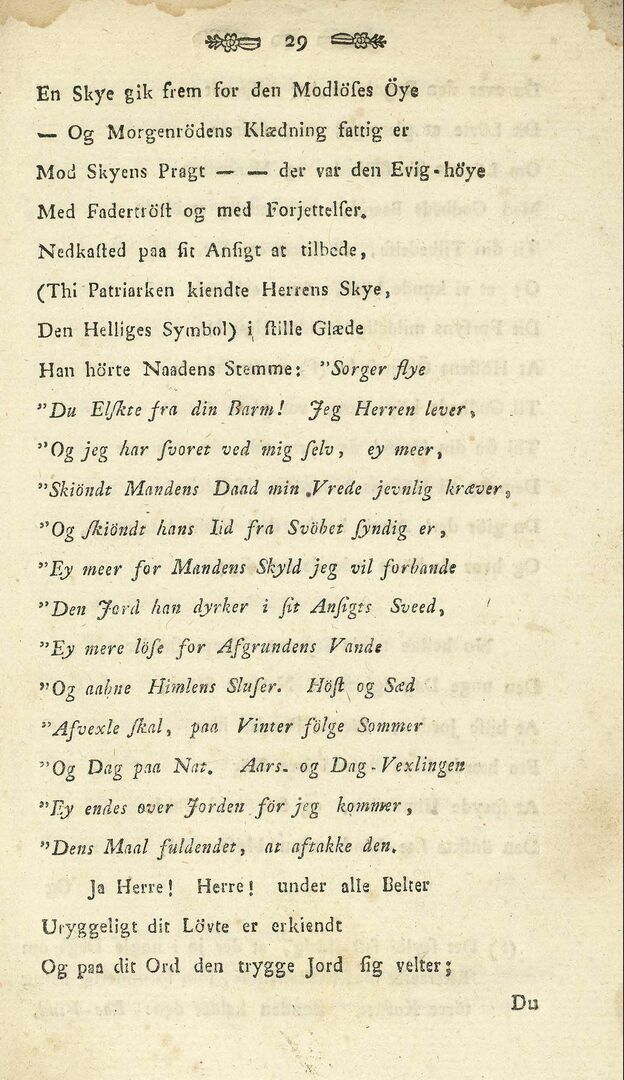 29
En Skye gik frem for den Modlöſes Öye
— Og Morgenrödens Klædning fattig er
Mod Skyens Pragt — — der var den Evig-höye
Med Fadertröſt og med Forjettelſer.
Nedkaſted paa ſit Anſigt at tilbede,
(Thi Patriarken kiendte Herrens Skye,
Den Helliges Symbol) i ſtille Glæde
Han hörte Naadens Stemme: "Sorger flye
"Du Elſkte fra din Barm! Jeg Herren lever,
"Og jeg har ſvoret ved mig ſelv, ey meer,
"Skiöndt Mandens Daad min Vrede jevnlig kræver,
"Og ſkiöndt hans Iid fra Svöbet ſyndig er,
"Ey meer for Mandens Skyld jeg vil forbande
"Den Jord han dyrker i ſit Anſigts Sveed,
"Ey mere löſe for Afgrundens Vande
"Og aabne Himlens Sluſer. Höſt og Sæd
"Afvexle ſkal, paa Vinter fölge Sommer
"Og Dag paa Nat. Aars- og Dag-Vexlingen
"Ey endes over Jorden för jeg kommer,
"Dens Maal fuldendet, at aftakke den.
Ja Herre! Herre! under alle Belter
Uryggeligt dit Lövte er erkiendt
Og paa dit Ord den trygge Jord ſig velter;
Du